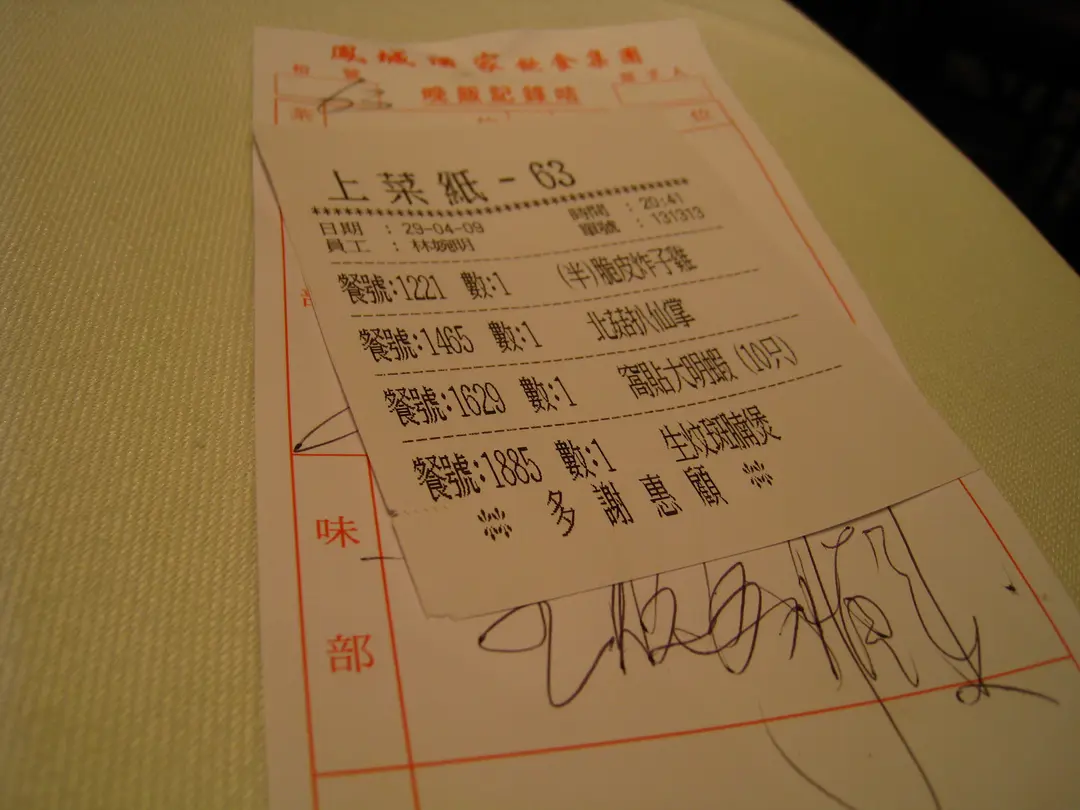 鳳城酒家飲食集團
枱號
63
晚飯記錄咭
菜
位
上菜紙-63
日期 : 29-04-09 時間 : 20:41
員工 : 林婉明 單號 : 131313
餐號:1221 數:1 (半)脆皮炸子雞
餐號:1465 數:1 北菇扒仙掌
餐號:1629 數:1 窩貼大明蝦 (10只)
餐號:1885 數:1 生炆斑腩煲
多謝惠顧
味
部